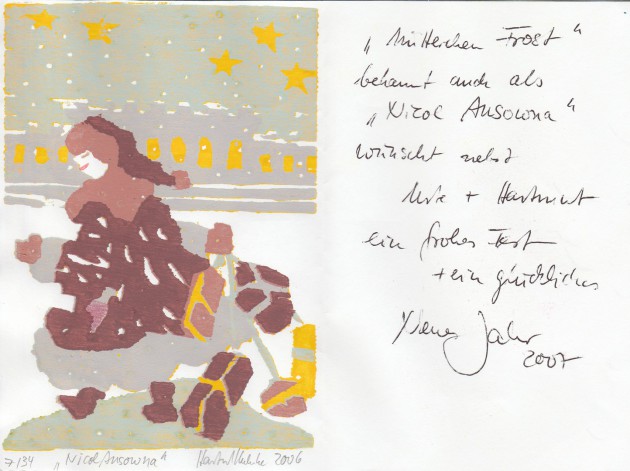 „Mütterchen Frost“
bekannt auch als
„Nicol Ausowna“
wünscht nebst
Ute + Hartmut
ein frohes Fest
+ ein glückliches
Neues Jahr
2007
7/34 „Nicol Ausowna“ 2006